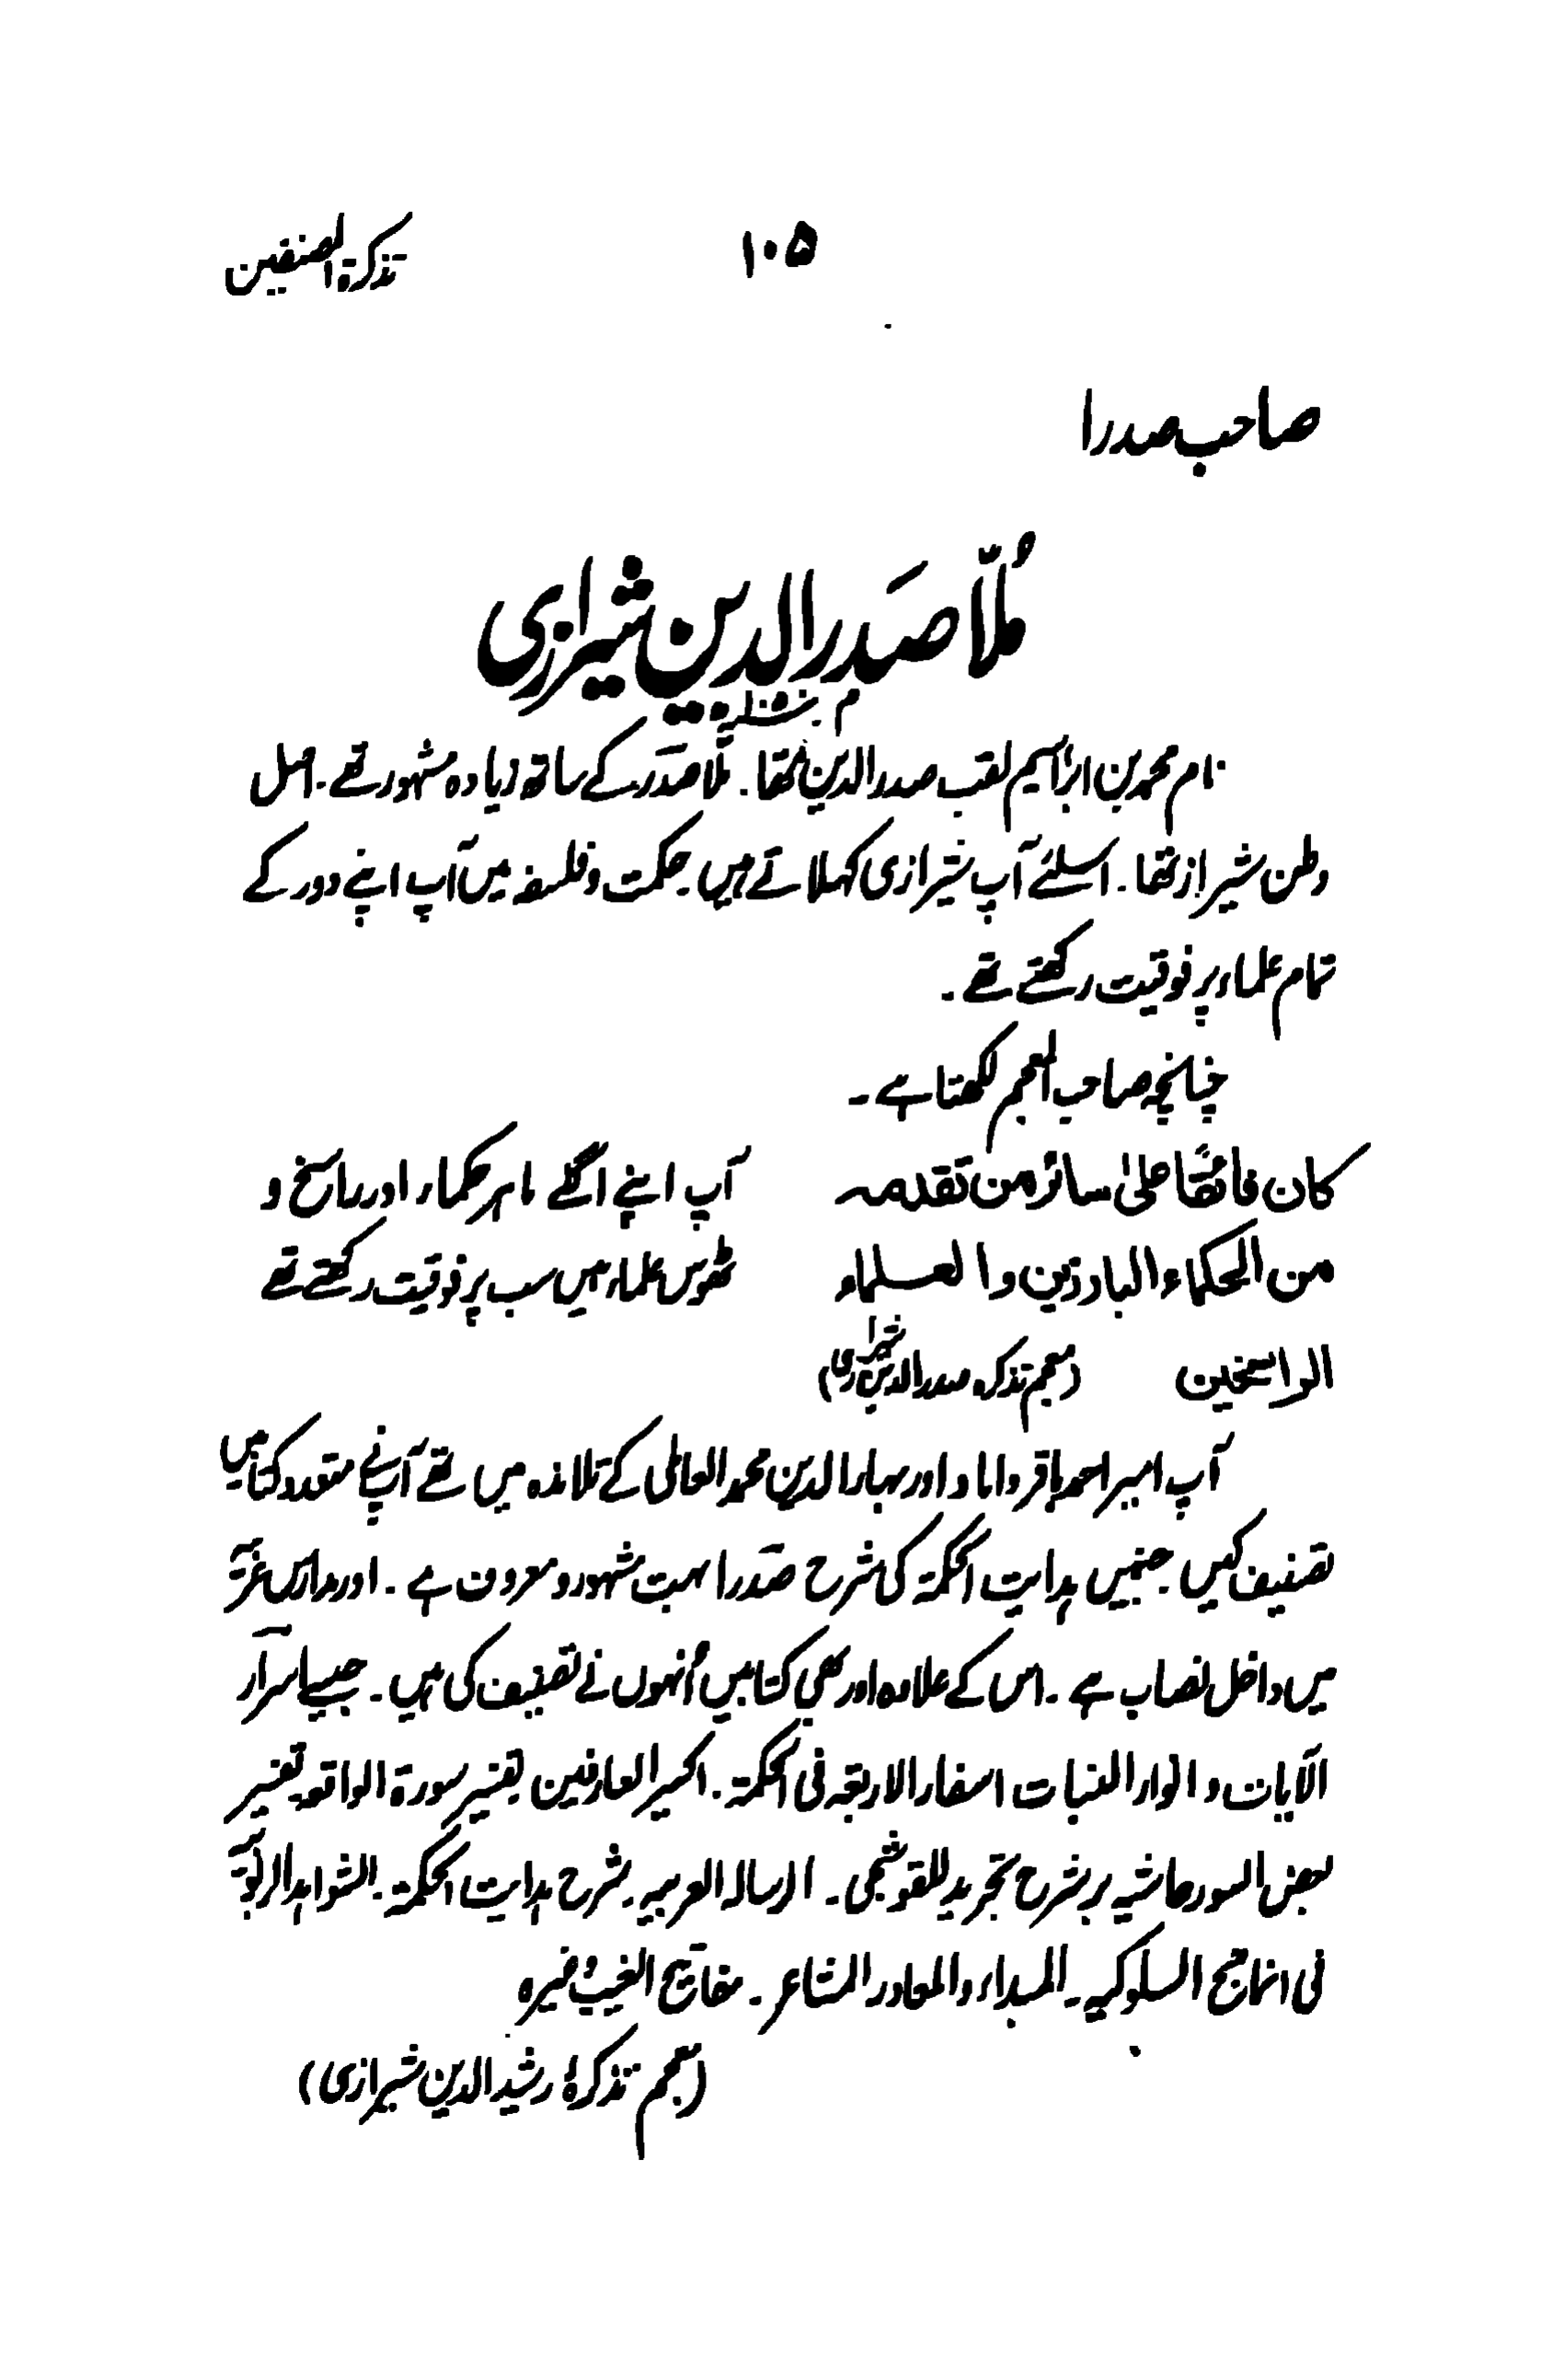 تذکرۃ المصنفین
۱۰۵
صاحب صدرا
مُلّا صَدرالدین شیرازی
نام محمد بن ابراہیم لقب صدرالدین تھا۔ مُلّا صَدرہ کے ساتھ زیادہ مشہور تھے۔ اصل
وطن شیراز تھا۔ اسلئے آپ شیرازی کہلاتے ہیں حکمت و فلسفہ میں آپ اپنے دور کے
تمام علماء پر فوقیت رکھتے تھے۔
چنانچہ صاحب المعجم لکھتا ہے۔
کان فائقًا علیٰ سائر من تقدمہ
آپ اپنے اگلے ماہر حکماء اور راسخ و
من الحکماء البارزین والعلماء
ٹھوس علماء میں سب پر فوقیت رکھتے تھے
الراسخین (معجم تذکرہ صدرالدین شیرازی)
آپ امیر احمد باقر داماد اور بہاء الدین محمد العاملی کے تلامذہ میں تھے آپنے متعدد کتابیں
تصنیف کیں جنمیں ہدایت الحکمۃ کی شرح صَدرا بہت مشہور و معروف ہے۔ اور مدارس عَربیّہ
میں داخل نصاب ہے۔ اس کے علاوہ اور بھی کتابیں اُنہوں نے تصنیف کی ہیں۔ جیسے اسرار
الآیات و انوار البینات اسفار الاربعہ فی الحکمۃ۔ اکسیر العارفین تفسیر سورۃ الواقعہ تفسیر
بعض السور حاشیہ بر شرح تجرید للقوشجی۔ الرسالہ العربیہ شرح ہدایت الحکمۃ۔ الشواہد الربوبیّہ
فی المناہج السلوکیہ۔ المبداء والمعاد در المشاعر۔ مفاتیح الغیب وغیرہ
(معجم تذکرۂ رشید الدین شیرازی)